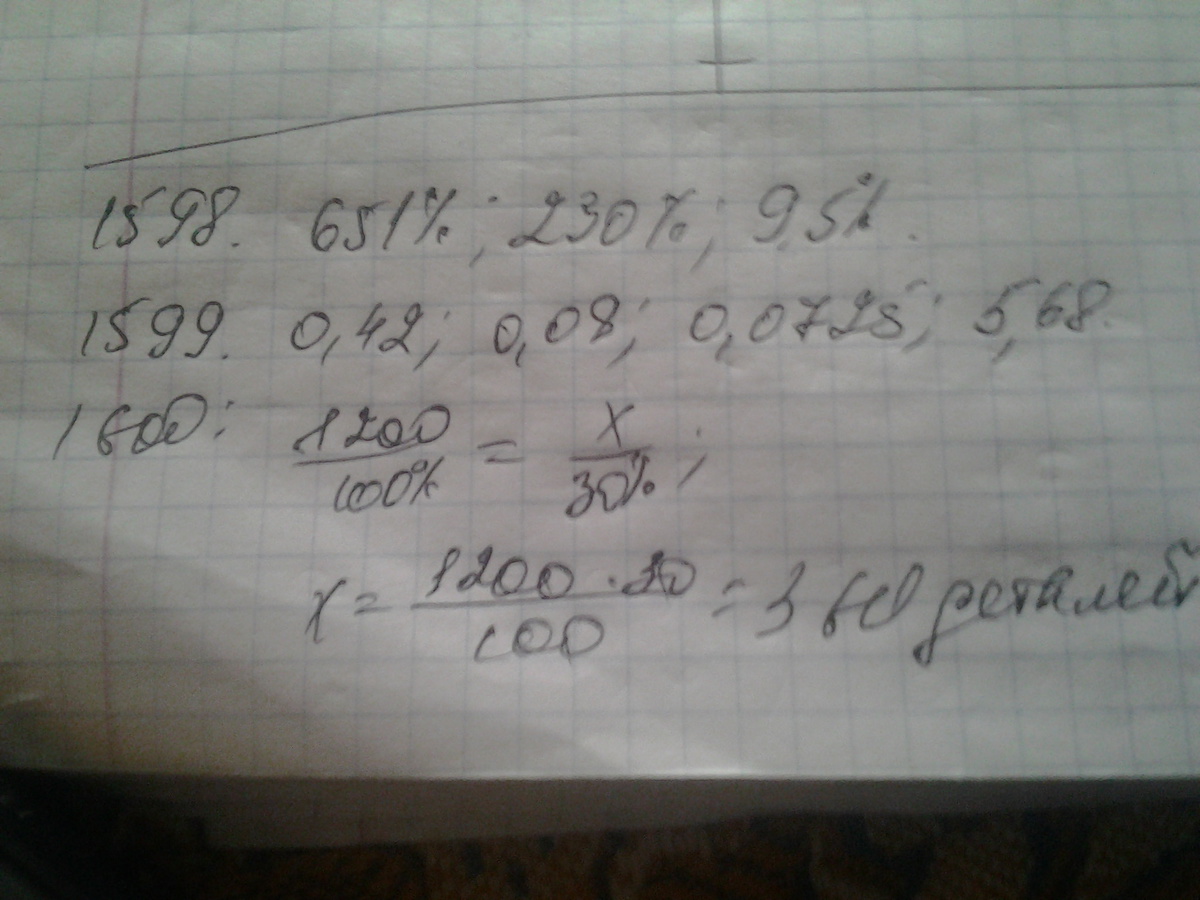 1598. 651%; 230%; 9,5%.
1599. 0,42; 0,08; 0,0725; 5,68.
1600: 1200/100% = x/30%;
x = 1200 · 30/100 = 360 деталей